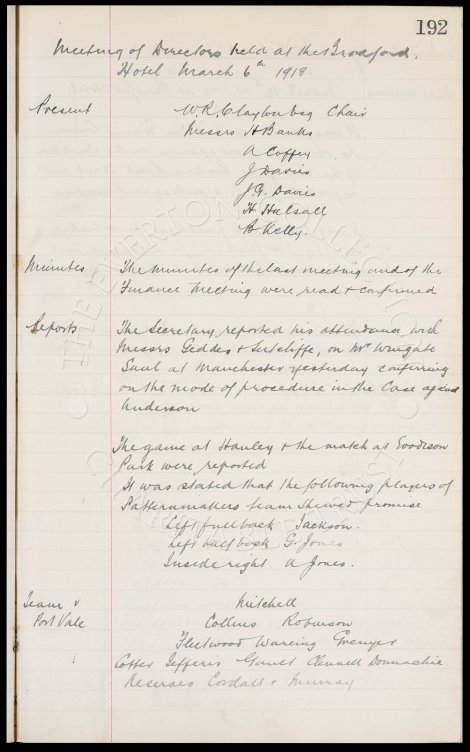 192
Meeting of Directors held at the Bradford
Hotel March 6th 1919.
Present W.R. Clayton Esq Chair
Messrs H Banks
A Coffey
J Davies
J.G. Davies
H Halsall
B Kelly.
Minutes The minutes of the last meeting and of the
Finance Meeting were read & confirmed
Reports The Secretary reported his attendance with
Messrs Geddes & Sutcliffe, on Mr Wingate
Saul at Manchester yesterday conferring
on the mode of procedure in the Case against
Anderson
The game at Hanley & the match at Goodison
Park were reported
It was stated that the following players of
Patternmakers team shewed promise
Left full back Jackson.
Left half back G. Jones
Inside right A Jones.
Team v Mitchell
Port Vale Collins Robinson
Fleetwood Wareing Grenyer
Cotter Jefferis Gault Clennell Donnachie
Reserves Cordall & Murray
THE EVERTON COLLECTION